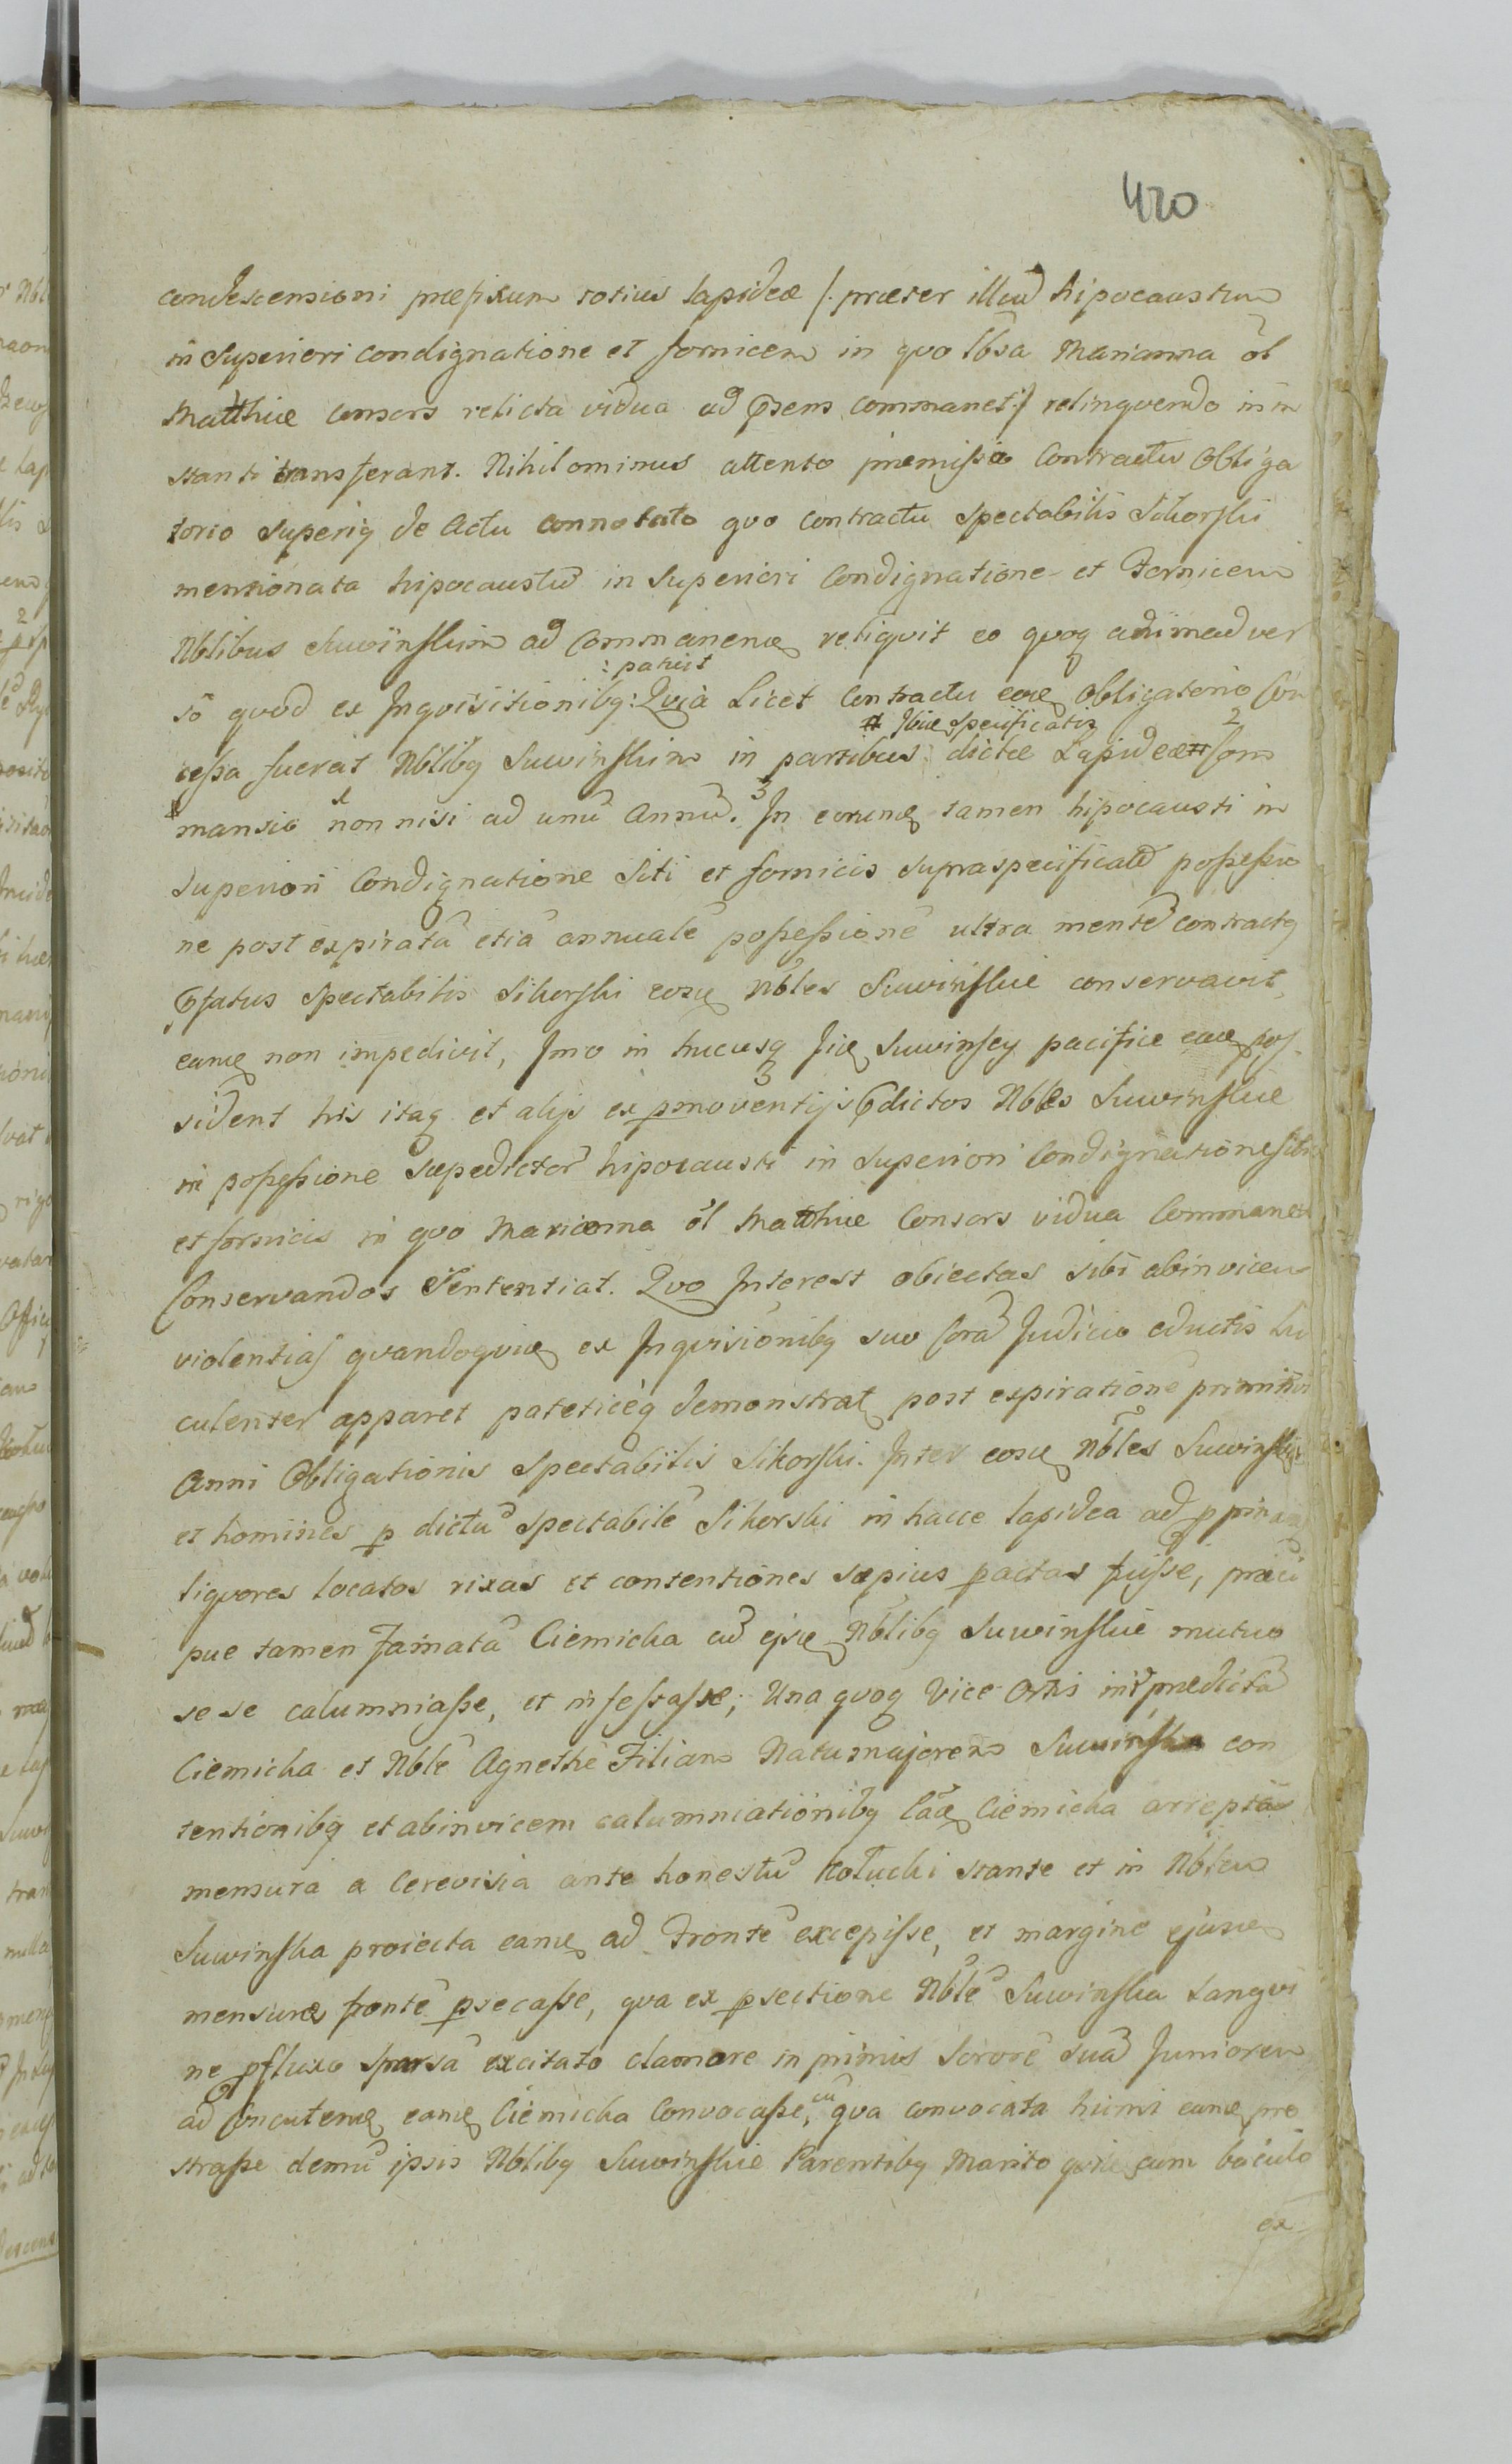 420
condescensioni præfixum totius lapideæ /. præter illud hipocaustum
in Superiori condignatione et fornicem in quo Nbsa Marianna ol
Matthiæ consors relicta vidua ad pñsens commanet ./ relinquendo in in
stanti transferant. Nihilominus attento præmisso Contractu Obliga
torio superiq de Actu connotato quo contractu Spectabilis Sikorski
mentionata hipocaustũ in Superiori Condignatione et Fornicem
Nblibus Suwinskim ad commanend reliquit eo quoq animadver
: patuit
so quod ex Inquisitionibq: Quia Licet Contractu eod Obligatorio Con
# Ibiie specificatis 2
cessa fuerat Nblibq Suwinskim in partibus dictæ Lapideæ # Com
mansio non nisi ad unũ Annũ. 3 In eorund tamen hipocausti in
Superiori Condignatione Siti et fornicis supraspecificatã possessio
ne post expiratã etiã annualẽ possessionẽ ultra mentẽ contractq
pfatus Spectabilis Sikorski eosd Nbles Suwinskie conservavit,
eand non impedivit, Imo in hucusq Iid Suwinscy pacifice ead pos
sident his itaq et alijs ex pmoventijs pdictos Nbles Suwinskie
in possessione sæpedictor hipocausti in Superiori Condignatione siti
et fornicis in quo Marianna ol Matthiæ Consors vidua Commanet
Conservandos Sententiat. Quo Interest obiectas sibi abinvicem
violentias quandoquid ex Inquisitionibq suo corã Judicio eductis lu
culenter apparet pateticèq demonstrat post expirationẽ primitivi
Anni Obligationis Spectabilis Sikorski. Inter eosd Nbles Suwinskie
et homines p dictũ Spectabilẽ Sikorski in hacce lapidea ad ppinand
liquores locatos rixas et contentiones sæpius pactas fuisse, præci
pue tamen Famatã Ciemicka cũ ejsd Nblibq Suwinskie mutuo
se se calumniasse, et infestasse; Una quoq Vice Ortis intr prædictã
Ciemicka et Nblẽ Agnethẽ Filiam Natu majorem Suwinska con
tentionibq et abinvicem calumniationibq eãd Ciemicka arreptã
mensurã a Cerevisia ante honestũ Kołucki stante et in Nblem
Suwinska proiecta eand ad Frontẽ excepisse, et margine ejusd
mensuræ frontẽ psecasse, qua ex psectione Nblẽ Suwinska sangvi
ne pfluxo sparsã excitato clamore in primis Sororẽ suã Juniorem
ad Concutiend eand Ciemicka Convocasse, cũ qua convocata humi eand pro
strasse demũ ipsis Nblibq Suwinskie Parentibq Marito quid cum baculo
ex